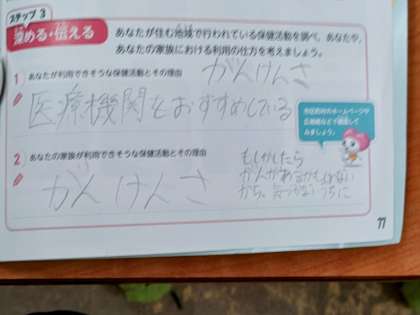 ステップ 3
深める・伝える
あなたが住む地域で行われている保健活動を調べ、あなたや、
あなたの家族における利用の仕方を考えましょう。
1 あなたが利用できそうな保健活動とその理由
がんけんさ
医療機関をおすすめしている
市区町村のホームページや
広報紙などで確認して
みましょう。
2 あなたの家族が利用できそうな保健活動とその理由
がんけんさ
もしかしたら
がんがあるかもしれない
から、気づかないうちに
77